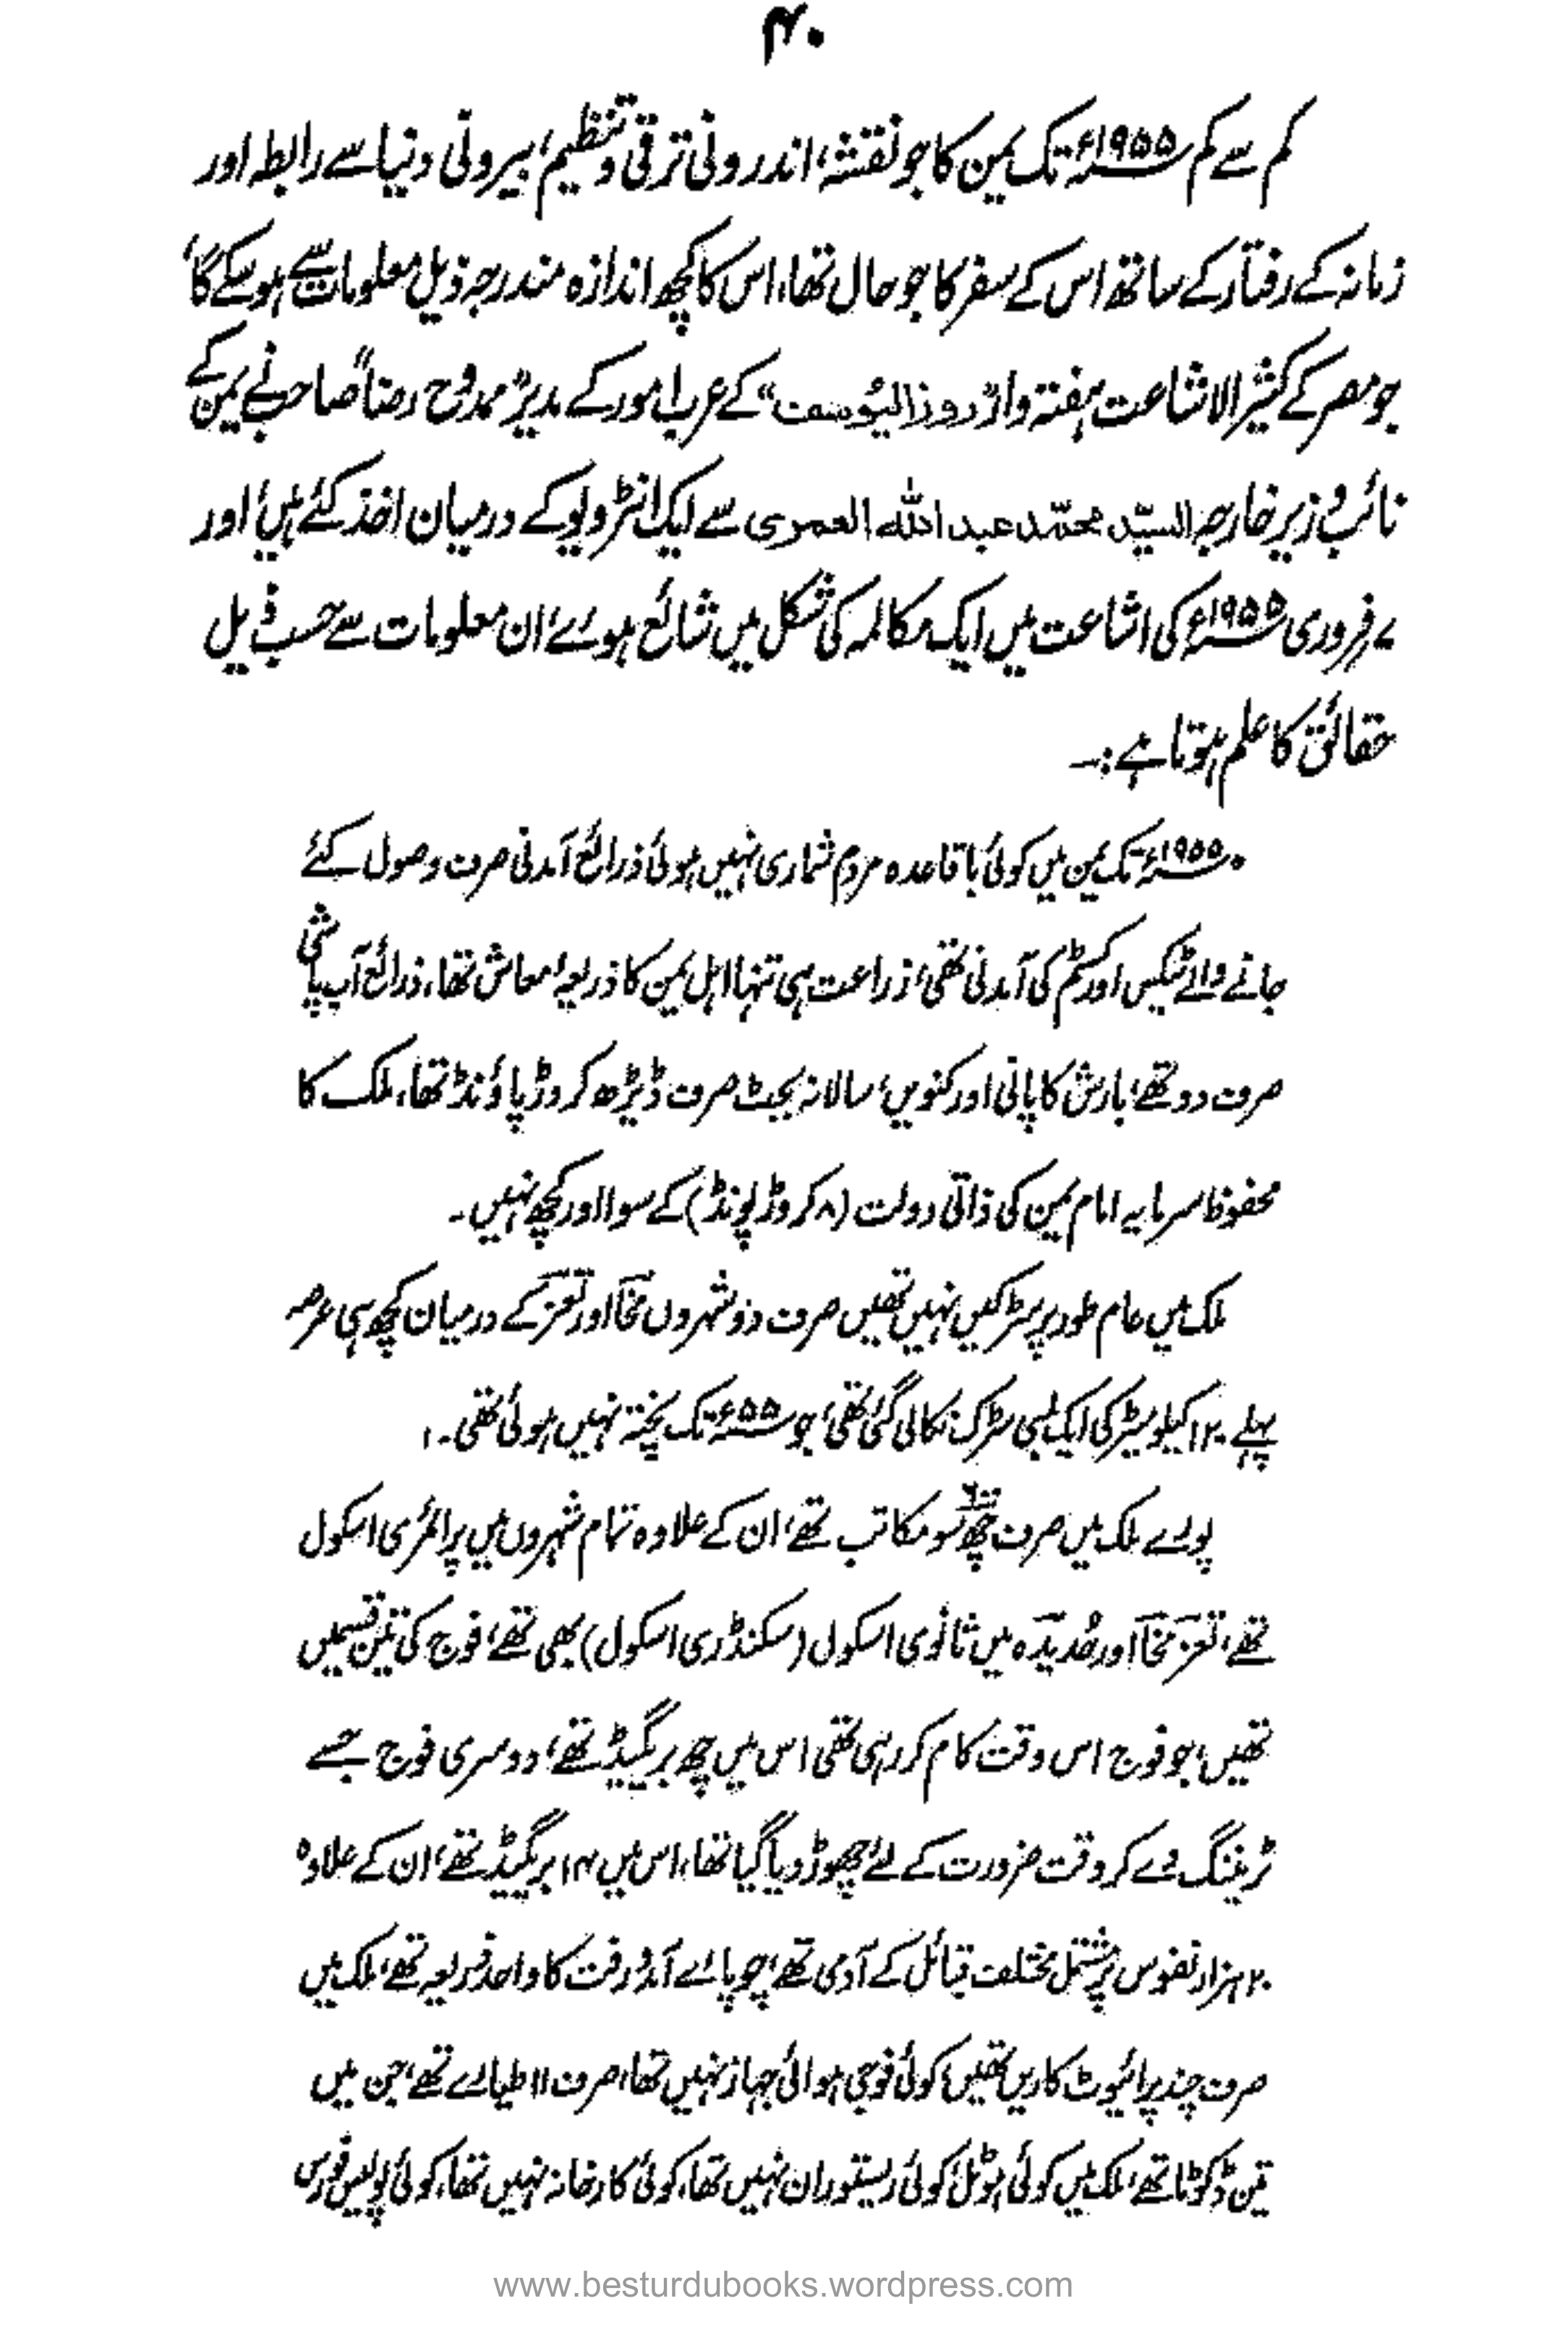 ۴۰
کم سے کم ۱۹۵۵ء تک یمن کا جو نقشہ، اندرونی ترقی و تنظیم، بیرونی دنیا سے رابطہ اور
زمانہ کے رفتار کے ساتھ اس کے سفر کا جو حال تھا، اس کا کچھ اندازہ مندرجہ ذیل معلومات سے ہو سکے گا،
جو مصر کے کثیر الاشاعت ہفتہ وار "روز الیوسف" کے عرب امور کے مدیر "ممدوح رضا" صاحب نے یمن کے
نائب وزیر خارجہ السیّد محمّد عبد اللہ العمری سے ایک انٹرویو کے درمیان اخذ کئے ہیں، اور
۷؍فروری ۱۹۵۵ء کی اشاعت میں ایک مکالمہ کی شکل میں شائع ہوئے، ان معلومات سے حسب ذیل
حقائق کا علم ہوتا ہے:۔
۱۹۵۵ء تک یمن میں کوئی باقاعدہ مردم شماری نہیں ہوئی ذرائع آمدنی صرف وصول کئے
جانے والے ٹیکس اور کسٹم کی آمدنی تھی، زراعت ہی تنہا اہل یمن کا ذریعۂ معاش تھا، ذرائع آب پاشی
صرف دو تھے، بارش کا پانی اور کنویں، سالانہ بجٹ صرف ڈیڑھ کروڑ پاؤنڈ تھا، ملک کا
محفوظ سرمایہ امام یمن کی ذاتی دولت (۸ کروڑ پونڈ) کے سوا اور کچھ نہیں۔
ملک میں عام طور پر سڑکیں نہیں تھیں صرف دو شہروں مخا اور تعز کے درمیان کچھ ہی عرصہ
پہلے ۱۲۰ کیلومیٹر کی ایک لمبی سڑک نکالی گئی تھی، جو ۵۵ء تک پختہ نہیں ہوئی تھی۔
پورے ملک میں صرف چھ سو مکاتب تھے، ان کے علاوہ تمام شہروں میں پرائمری اسکول
تھے، تعز مخا اور حُدیدہ میں ثانوی اسکول (سکنڈری اسکول) بھی تھے، فوج کی تین قسمیں
تھیں، جو فوج اس وقت کام کر رہی تھی اس میں چھ بریگیڈ تھے، دوسری فوج جسے
ٹریننگ دے کر وقت ضرورت کے لئے چھوڑ دیا گیا تھا، اس میں ۱۴ بریگیڈ تھے، ان کے علاوہ
۲۰ ہزار نفوس پر مشتمل مختلف قبائل کے آدمی تھے، چوپائے آمد و رفت کا واحد ذریعہ تھے، ملک میں
صرف چند پرائیوٹ کاریں تھیں، کوئی فوجی ہوائی جہاز نہیں تھا، صرف ۱۱ طیارے تھے، جن میں
تین ڈکوٹا تھے، ملک میں کوئی ہوٹل، کوئی ریستوران نہیں تھا، کوئی کارخانہ نہیں تھا، کوئی پولیس فورس
www.besturdubooks.wordpress.com